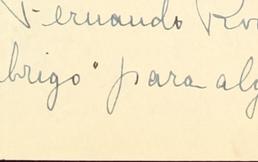 Fernando
brigo" para alg